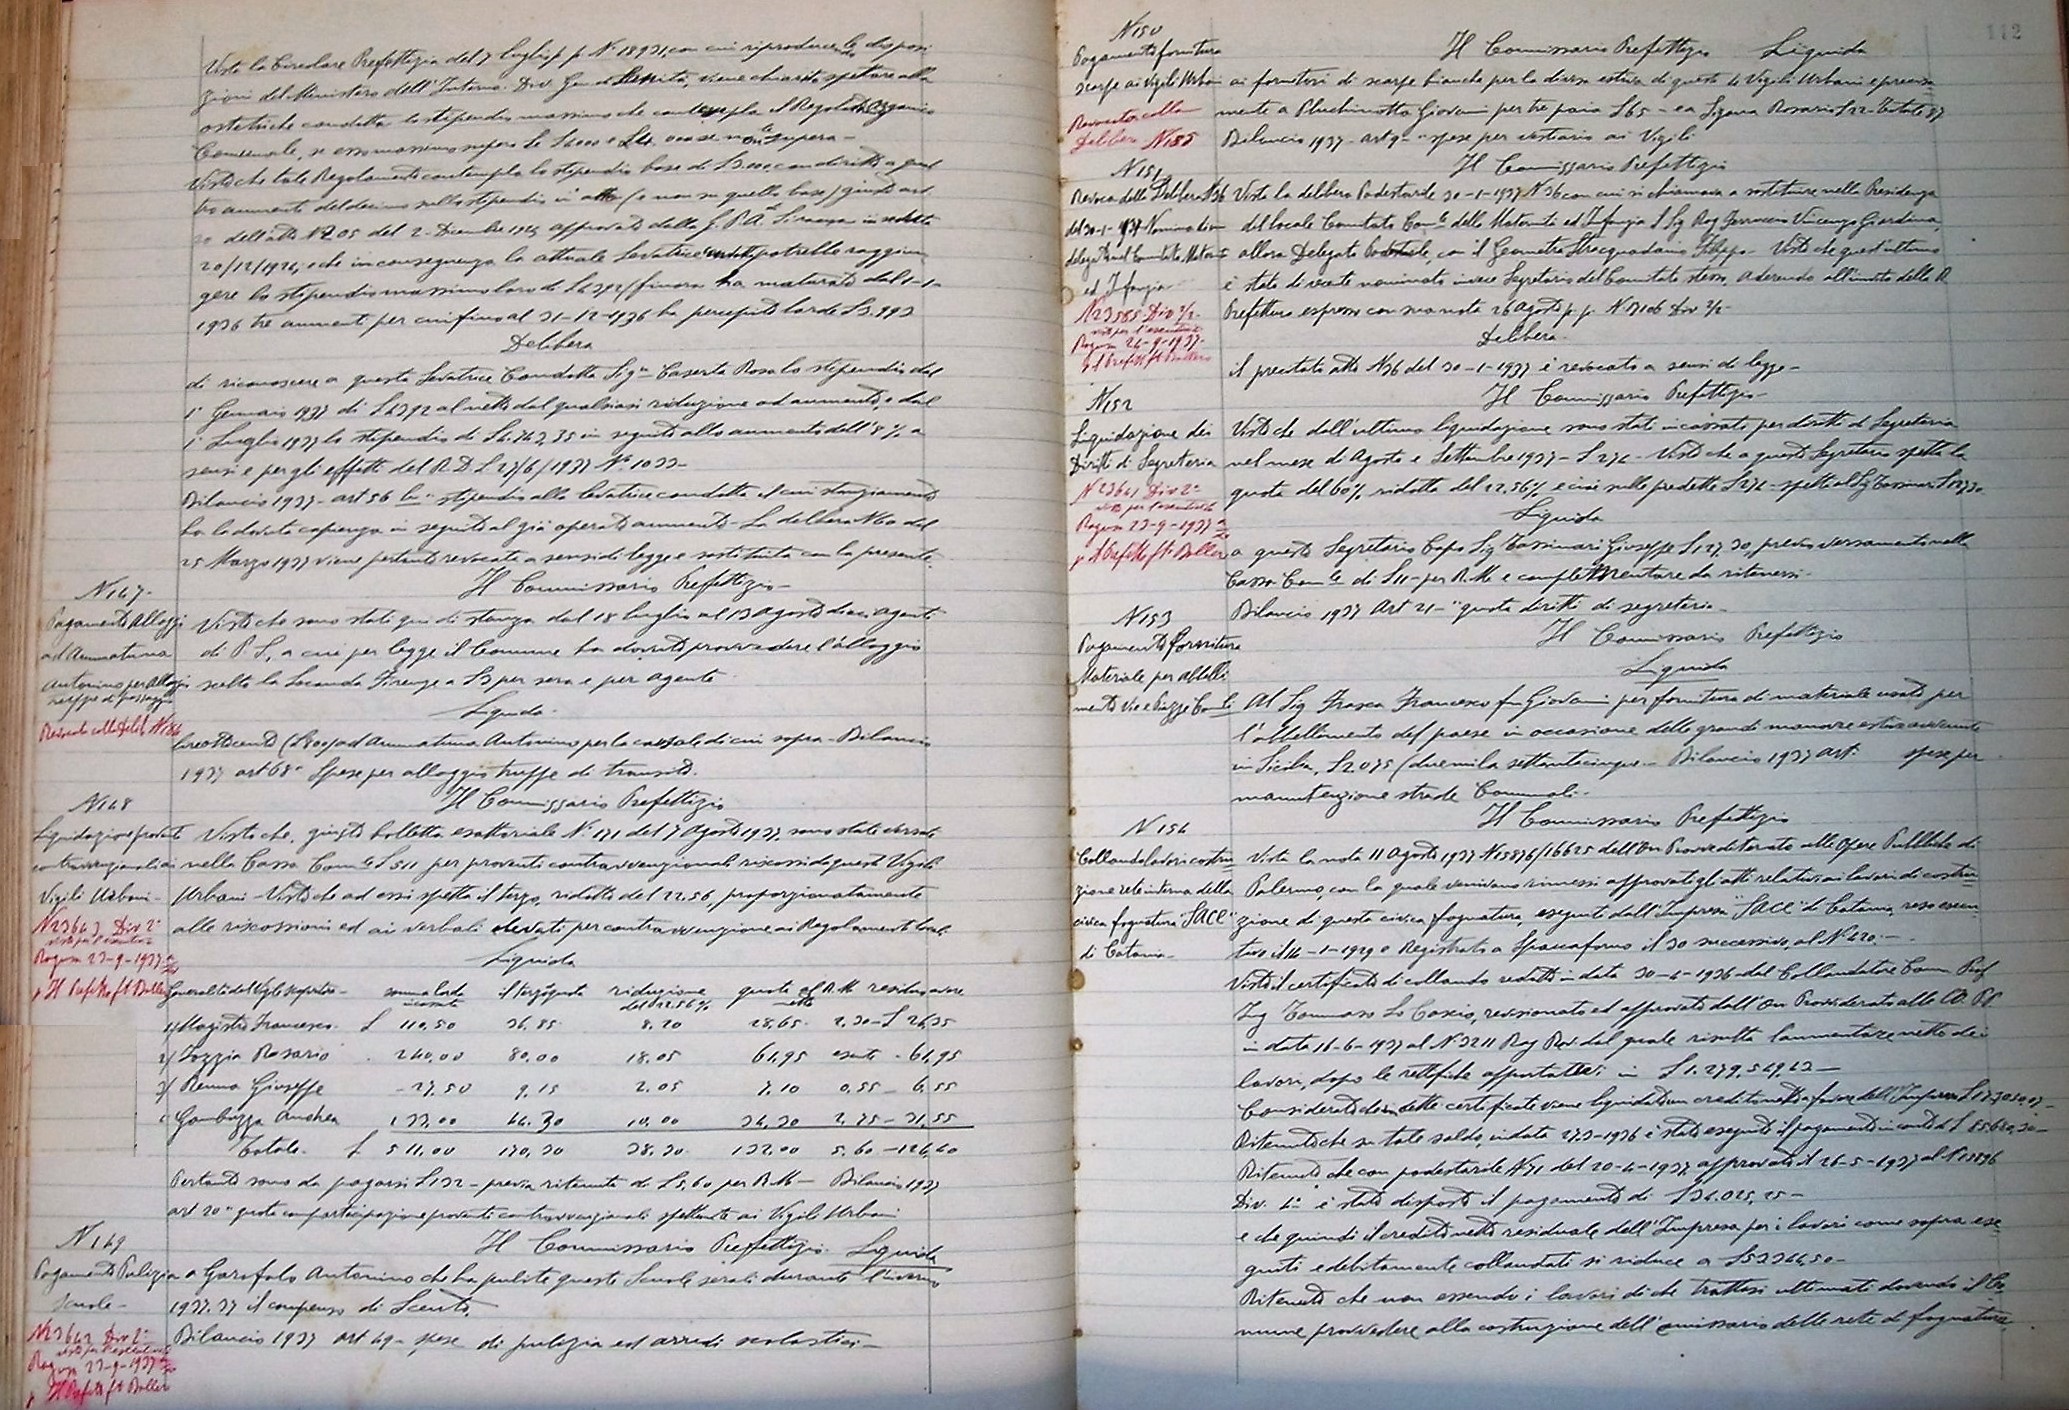 Vista la Circolare Prefettizia del 7 luglio p.p. N° 18931, con cui riproducendo le disposi
zioni del Ministero dell'Interno. Div. Gen. di Sanità, viene chiarito spettare alla
ostetriche condotte lo stipendio massimo che contempla il Regolamento Organico
Comunale, se esso massimo supera le L 4000 e supera -
Visto che tale Regolamento contempla lo stipendio base di L 3.000, con diritto a quat
tro aumenti del decimo sullo stipendio in atto (e non su quello base) giusto art.
20 dell'atto N 205 del 2 Dicembre 1926 approvato dalla G.P.A. di Siracusa in seduta
20/12/1926, e che in conseguenza la attuale Levatrice potrebbe raggiun
gere lo stipendio massimo lordo di L 4392 (finora ha maturato dal 1-1-
1936 tre aumenti per cui fino al 31-12-1936 ha percepito lorde L 3.993
Delibera
di riconoscere a questa Levatrice Condotta Sig.ra Caserta Rosa lo stipendio dal
1° Gennaio 1937 di L 4392 al netto dal qualsiasi riduzione ad aumento, e dal
1° Luglio 1937 lo stipendio di L 4.743,35 in seguito allo aumento dell'8% a
sensi e per gli effetti del R.D.L 27/6/1937 N° 1033-
Bilancio 1937 - art 56 stipendio alla levatrice condotta il cui stanziamento
ha la dovuta capienza in seguito al già operato aumento - La delibera N 60 del
25 Marzo 1937 viene pertanto revocata a sensi di legge e sostituita con la presente.
N 147-
Pagamento Alloggi
ad Ammatuna
Antonino per Alloggi
truppe di passaggio
Revocata colla Delib. N 184
Il Commissario Prefettizio -
Visto che sono stati qui di stanza dal 18 luglio al 13 agosto dieci agenti
di P.S., a cui per legge il Comune ha dovuto provvedere l'alloggio
scelto la Locanda Firenze a L 3 per sera e per agente
Liquida -
lire ottocento (L 800) ad Ammatuna Antonino per la causale di cui sopra - Bilancio
1937 art 68 " Spese per alloggio truppe di transito.
N 148
Liquidazione proventi
contravvenzionali ai
Vigili Urbani -
N 23643 Div 2ª
visto per l'esecutorietà
Ragusa 23-9-1937
p Il Prefetto ft Ballero
Il Commissario Prefettizio
Visto che, giusto bolletta esattoriale N° 171 del 7 agosto 1937, sono state versate
nella Cassa Com.le L 511 per proventi contravvenzionali riscossi da questi Vigili
Urbani - Visto che ad essi spetta il terzo, ridotto del 22.56, proporzionatamente
alle riscossioni ed ai verbali elevati per contravvenzione ai Regolamenti locali.
Liquida
Generalità del Vigile scopritore - somma lorda incassata il terzo quota riduzione del 22.56% quota netta R.M. residuo avere
1/ Magistro Francesco. L 110,50 36,85 8,20 28,65 2,30 - L 26,35
2/ Iozzia Rosario . 240,00 80,00 18,05 61,95 esente - 61,95
3/ Renna Giuseppe - 27,50 9,15 2,05 7,10 0,55 - 6,55
4 Gambuzza Andrea 133,00 44.30 10,00 34,30 2,75 - 31,55
Totale. L 511,00 170,30 38,30 132,00 5,60 - 126,40
Pertanto sono da pagarsi L 132 - previa ritenuta di L 5,60 per R.M - Bilancio 1937
art 20 " quota compartecipazione proventi contravvenzionali spettante ai Vigili Urbani
N 149
Pagamento Pulizia
Scuole -
N 23642 Div 2ª
visto per l'esecutorietà
Ragusa 23-9-1937
p Il Prefetto ft Ballero
Il Commissario Prefettizio. Liquida
a Garofalo Antonino che ha pulite queste Scuole serali durante l'inverno
1937.37 il compenso di L cento.
Bilancio 1937 art 49 - spese di pulizia ed arredi scolastici -
112
N 150
Pagamento fornitura
scarpe ai Vigili Urbani
Revocata colla
Delibera N 185
Il Commissario Prefettizio Liquida
ai fornitori di scarpe bianche per la divisa estiva di questi 4 Vigili Urbani e precisa
mente a Pluchinotta Giovanni per tre paia L 65 - e a Sigona Rosario L 22 - Totale 87
Bilancio 1937 - art 9 - " spese per vestiario ai Vigili
N 151
Revoca della Delibera N 36
del 30-1-1937 Nomina di un
delegato nel Comitato Maternità
ed Infanzia
N 23585 Div 2/2
visto per l'esecutorietà
Ragusa 24-9-1937-
p Il Prefetto ft Ballero
Il Commissario Prefettizio
Vista la delibera Podestarile 30-1-1937 N 36 con cui si chiamava a sostituire nella Presidenza
del locale Comitato Com.le della Maternità ed Infanzia il Sig Rag Vincenzo Giardina,
allora Delegato Podestarile, con il Geometra Stracquadanio Filippo - Visto che quest'ultimo
è stato di recente nominato invece Segretario del Comitato stesso, aderendo all'invito della R
Prefettura espresso con sua nota 26 Agosto p.p. N 17106 Div 2/2-
Delibera -
il precitato atto N 36 del 30-1-1937 è revocato a sensi di legge -
N 152
Liquidazione dei
Diritti di Segreteria
N 23641 Div 2ª
visto per l'esecutorietà
Ragusa 23-9-1937
p Il Prefetto ft Ballero
Il Commissario Prefettizio -
Visto che dall'ultima liquidazione sono stati incassati per diritti di Segreteria
nel mese di Agosto e Settembre 1937 - L 274 - Visto che a questo Segretario spetta la
quota del 60% ridotta del 22,56% e cioè sulle predette L 274 - spetta al Sig Tassinari L 127,30
Liquida
a questo Segretario Capo Sig Tassinari Giuseppe L 127,30, previo versamento nella
Cassa Com.le di L 11 - per R.M. e complementare da ritenersi.
Bilancio 1937 Art 21 - " quota diritti di segreteria -
N 153
Pagamento fornitura
Materiale per abbelli
mento Vie e Piazze Com.li
Il Commissario Prefettizio
Liquida
Al Sig Frasca Francesco fu Giovanni per fornitura di materiale usato per
l'abbellimento del paese in occasione delle grandi manovre estive avvenute
in Sicilia, L 2.075 (duemila settantacinque - Bilancio 1937 art. spese per
manutenzione strade Comunali -
N 154
Collaudo lavori costru
zione rete interna della
civica fognatura "SACE"
di Catania -
Il Commissario Prefettizio
Vista la nota 11 Agosto 1937 N 15876/16625 dell'On Provveditorato alle Opere Pubbliche di
Palermo, con la quale venivano rimessi approvati gli atti relativi ai lavori di costru
zione di questa civica fognatura, eseguiti dall'Impresa "SACE" di Catania, reso esecu
tivo il 14-1-1929 e Registrato a Spaccaforno il 30 successivo, al N° 420. -
Visto il certificato di collaudo redatto in data 30-4-1936 dal Collaudatore Comm. Prof
Ing Tommaso Lo Cascio, revisionato ed approvato dall'On Provveditorato alle OO. PP.
in data 16-6-1937 al N 3211 Rag Rev. dal quale risulta l'ammontare netto dei
lavori, dopo le rettifiche apportatevi in L 1.279,549,63 -
Considerato che da dette certificate viene liquidato un credito netto a favore dell'Impresa L
Ritenuto che su tale saldo, in data 27-3-1936 è stato eseguito il pagamento in conto di L 85680,30 -
Ritenuto che con podestarile N 71 del 20-4-1937, approvato il 26-5-1937 al N 13896
Div. 4ª è stato disposto il pagamento di L 34.025,25 -
e che quindi il credito netto residuale dell'Impresa per i lavori come sopra ese
guiti e debitamente collaudati si riduce a L 53364,50 -
Ritenuto che non essendo i lavori di che trattasi ultimati dovendo il Co
mune provvedere alla costruzione dell'emissario della rete di fognatura,